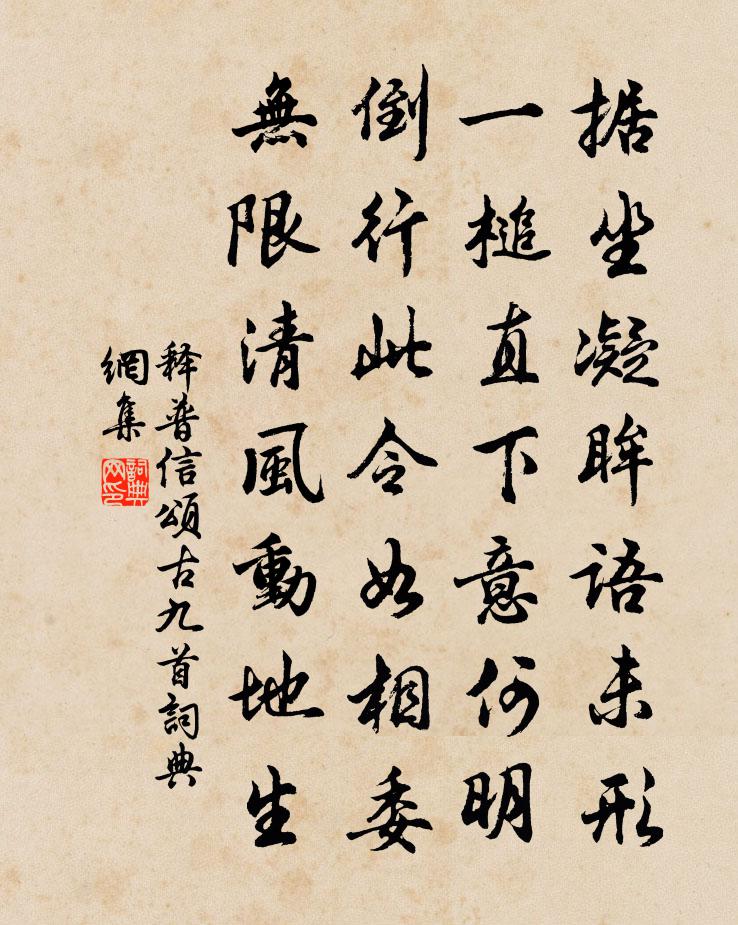 据坐凝眸語未形
一槌直下意何明
倒行此令如相委
無限清風動地生
释普信頌古九首詞典
網集
詞典网印